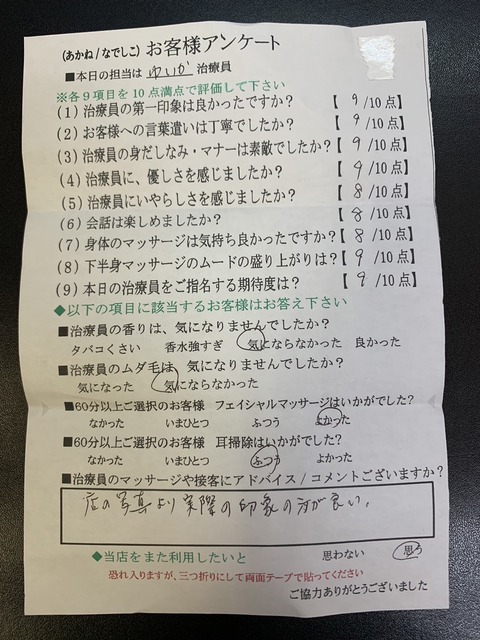 (あかね/なでしこ) お客様アンケート
■本日の担当は ゆいか 治療員
※各9項目を10点満点で評価して下さい
(1) 治療員の第一印象は良かったですか? 【 9 /10点】
(2) お客様への言葉遣いは丁寧でしたか? 【 9 /10点】
(3) 治療員の身だしなみ・マナーは素敵でしたか?【 9 /10点】
(4) 治療員に、優しさを感じましたか? 【 9 /10点】
(5) 治療員にいやらしさを感じましたか? 【 8 /10点】
(6) 会話は楽しめましたか? 【 8 /10点】
(7) 身体のマッサージは気持ち良かったですか?【 8 /10点】
(8) 下半身マッサージのムードの盛り上がりは?【 9 /10点】
(9) 本日の治療員をご指名する期待度は? 【 9 /10点】
◆以下の項目に該当するお客様はお答え下さい
■治療員の香りは、気になりませんでしたか?
タバコくさい 香水強すぎ 気にならなかった 良かった
■治療員のムダ毛は 気になりませんでしたか?
気になった 気にならなかった
■60分以上ご選択のお客様 フェイシャルマッサージはいかがでした?
なかった いまひとつ ふつう よかった
■60分以上ご選択のお客様 耳掃除はいかがでした?
なかった いまひとつ ふつう よかった
■治療員のマッサージや接客にアドバイス / コメントございますか?
店の写真より実際の印象の方が良い。
◆当店をまた利用したいと 思わない 思う
恐れ入りますが、三つ折りにして両面テープで貼ってください
ご協力ありがとうございました